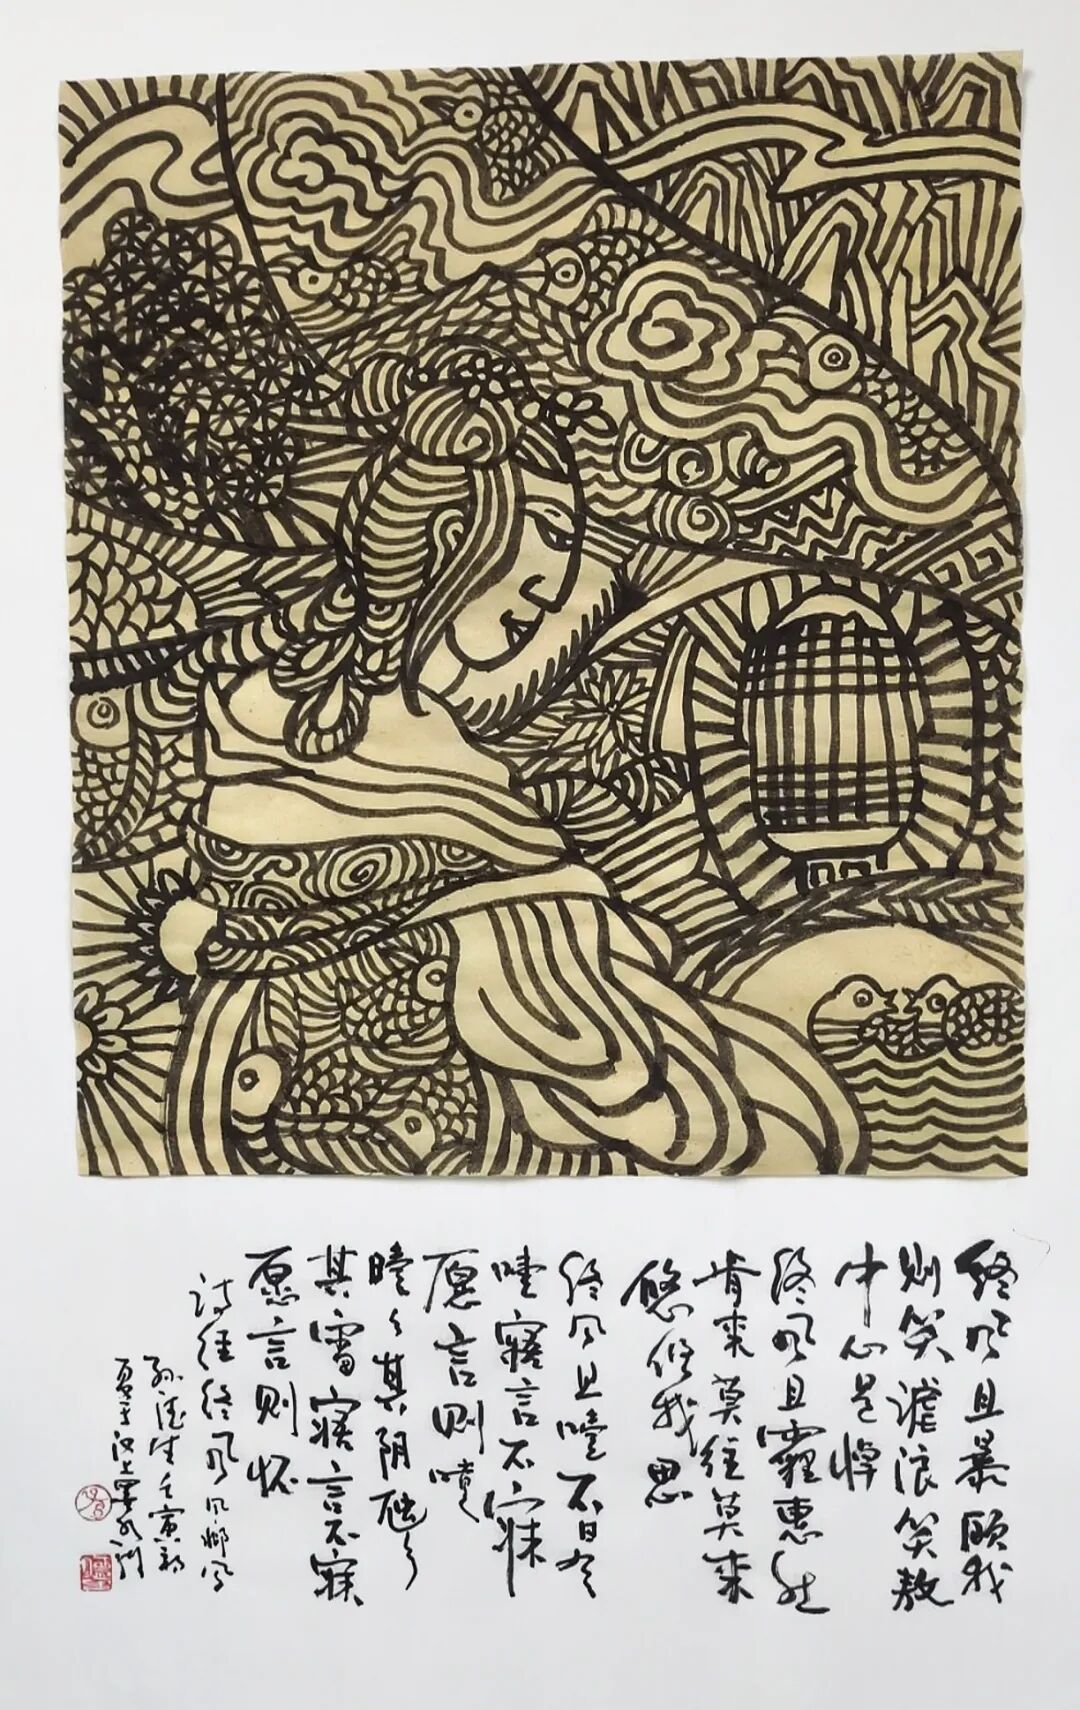 终风且暴顾我
则笑谑浪笑敖
中心是悼
终风且霾惠然
肯来莫往莫来
悠悠我思
终风且曀不日有
曀寤言不寐
愿言则嚏
曀々其阴虺々
其雷寤言不寐
愿言则怀
诗经终风风邶风
壬寅初
夏于汉上墨